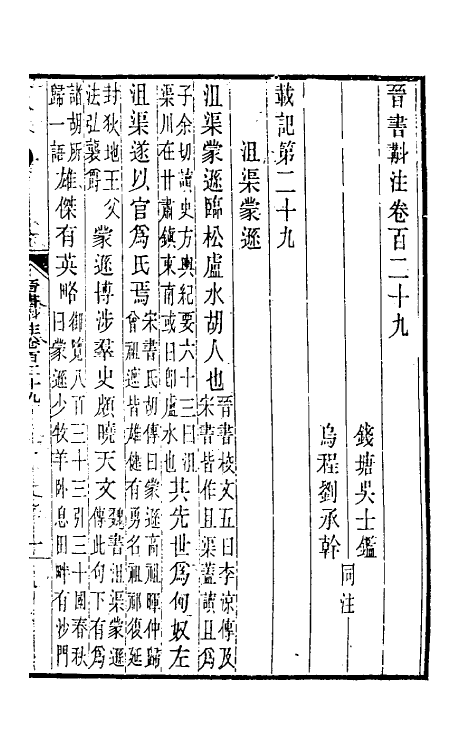 晉書斠注卷百二十九
錢塘吳士鑑
烏程劉承幹
同注
載記第二十九
沮渠蒙遜
沮渠蒙遜臨松盧水胡人也
晉書校文五曰李諒傳及
宋書皆作且渠蓋讀且爲
子余切讀史方輿紀要六十三曰沮
渠川在甘肅鎮東南或曰卽盧水也
其先世爲匈奴左
沮渠遂以官爲氏焉
宋書氐胡傳曰蒙遜高祖暉仲歸
曾祖遮皆雄健有勇名祖祁復延
封狄地王父
法弘襲爵
蒙遜博涉羣史頗曉天文
魏書沮渠蒙遜
傳此句下有爲
諸胡所
歸一語
雄傑有英略
御覽八百三十三引三十國春秋
曰蒙遜少牧羊臥息田畔有沙門
晉書斠注卷百二十九